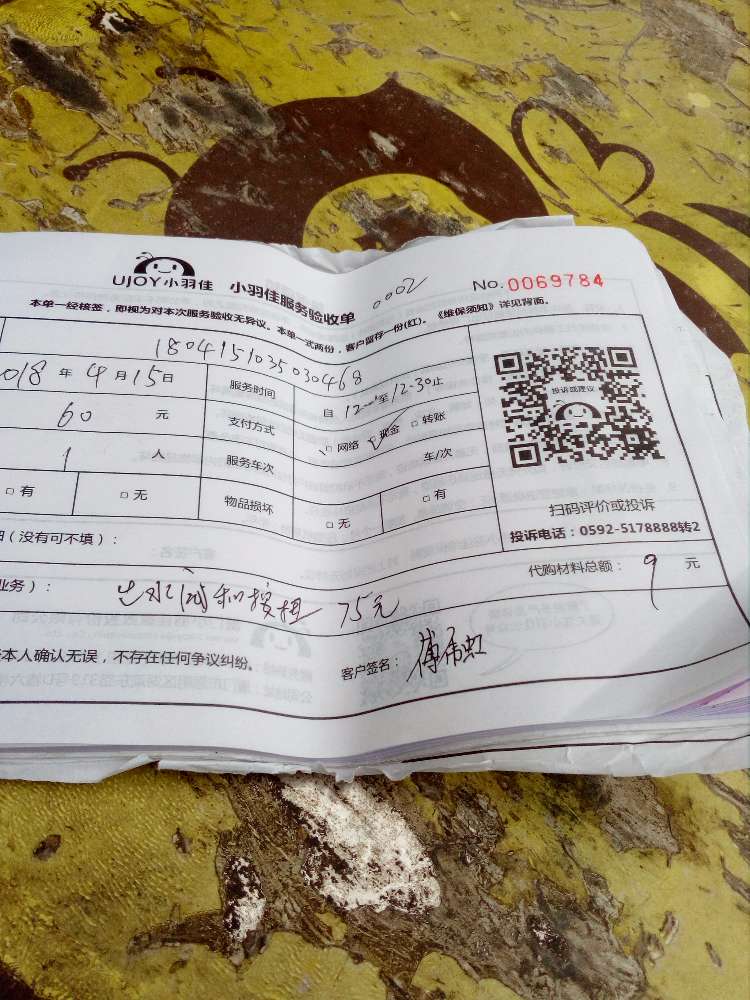 UJOY小羽佳 小羽佳服务验收单 0002 No.0069784
本单一经核签，即视为对本次服务验收无异议。本单一式两份，客户留存一份(红)。《维保须知》详见背面。
1804151035030468
018 年 4 月 15 日 服务时间 自 12 至 12:30 止
60 元 支付方式 □ 网络 ☑ 现金 □ 转账
1 人 服务车次 车/次
□ 有 □ 无 物品损坏 □ 无 □ 有
投诉或建议
扫码评价或投诉
投诉电话：0592-5178888转2
(没有可不填)：
代购材料总额： 9 元
业务)： 出水阀和按钮 75元
本人确认无误，不存在任何争议纠纷。 客户签名：